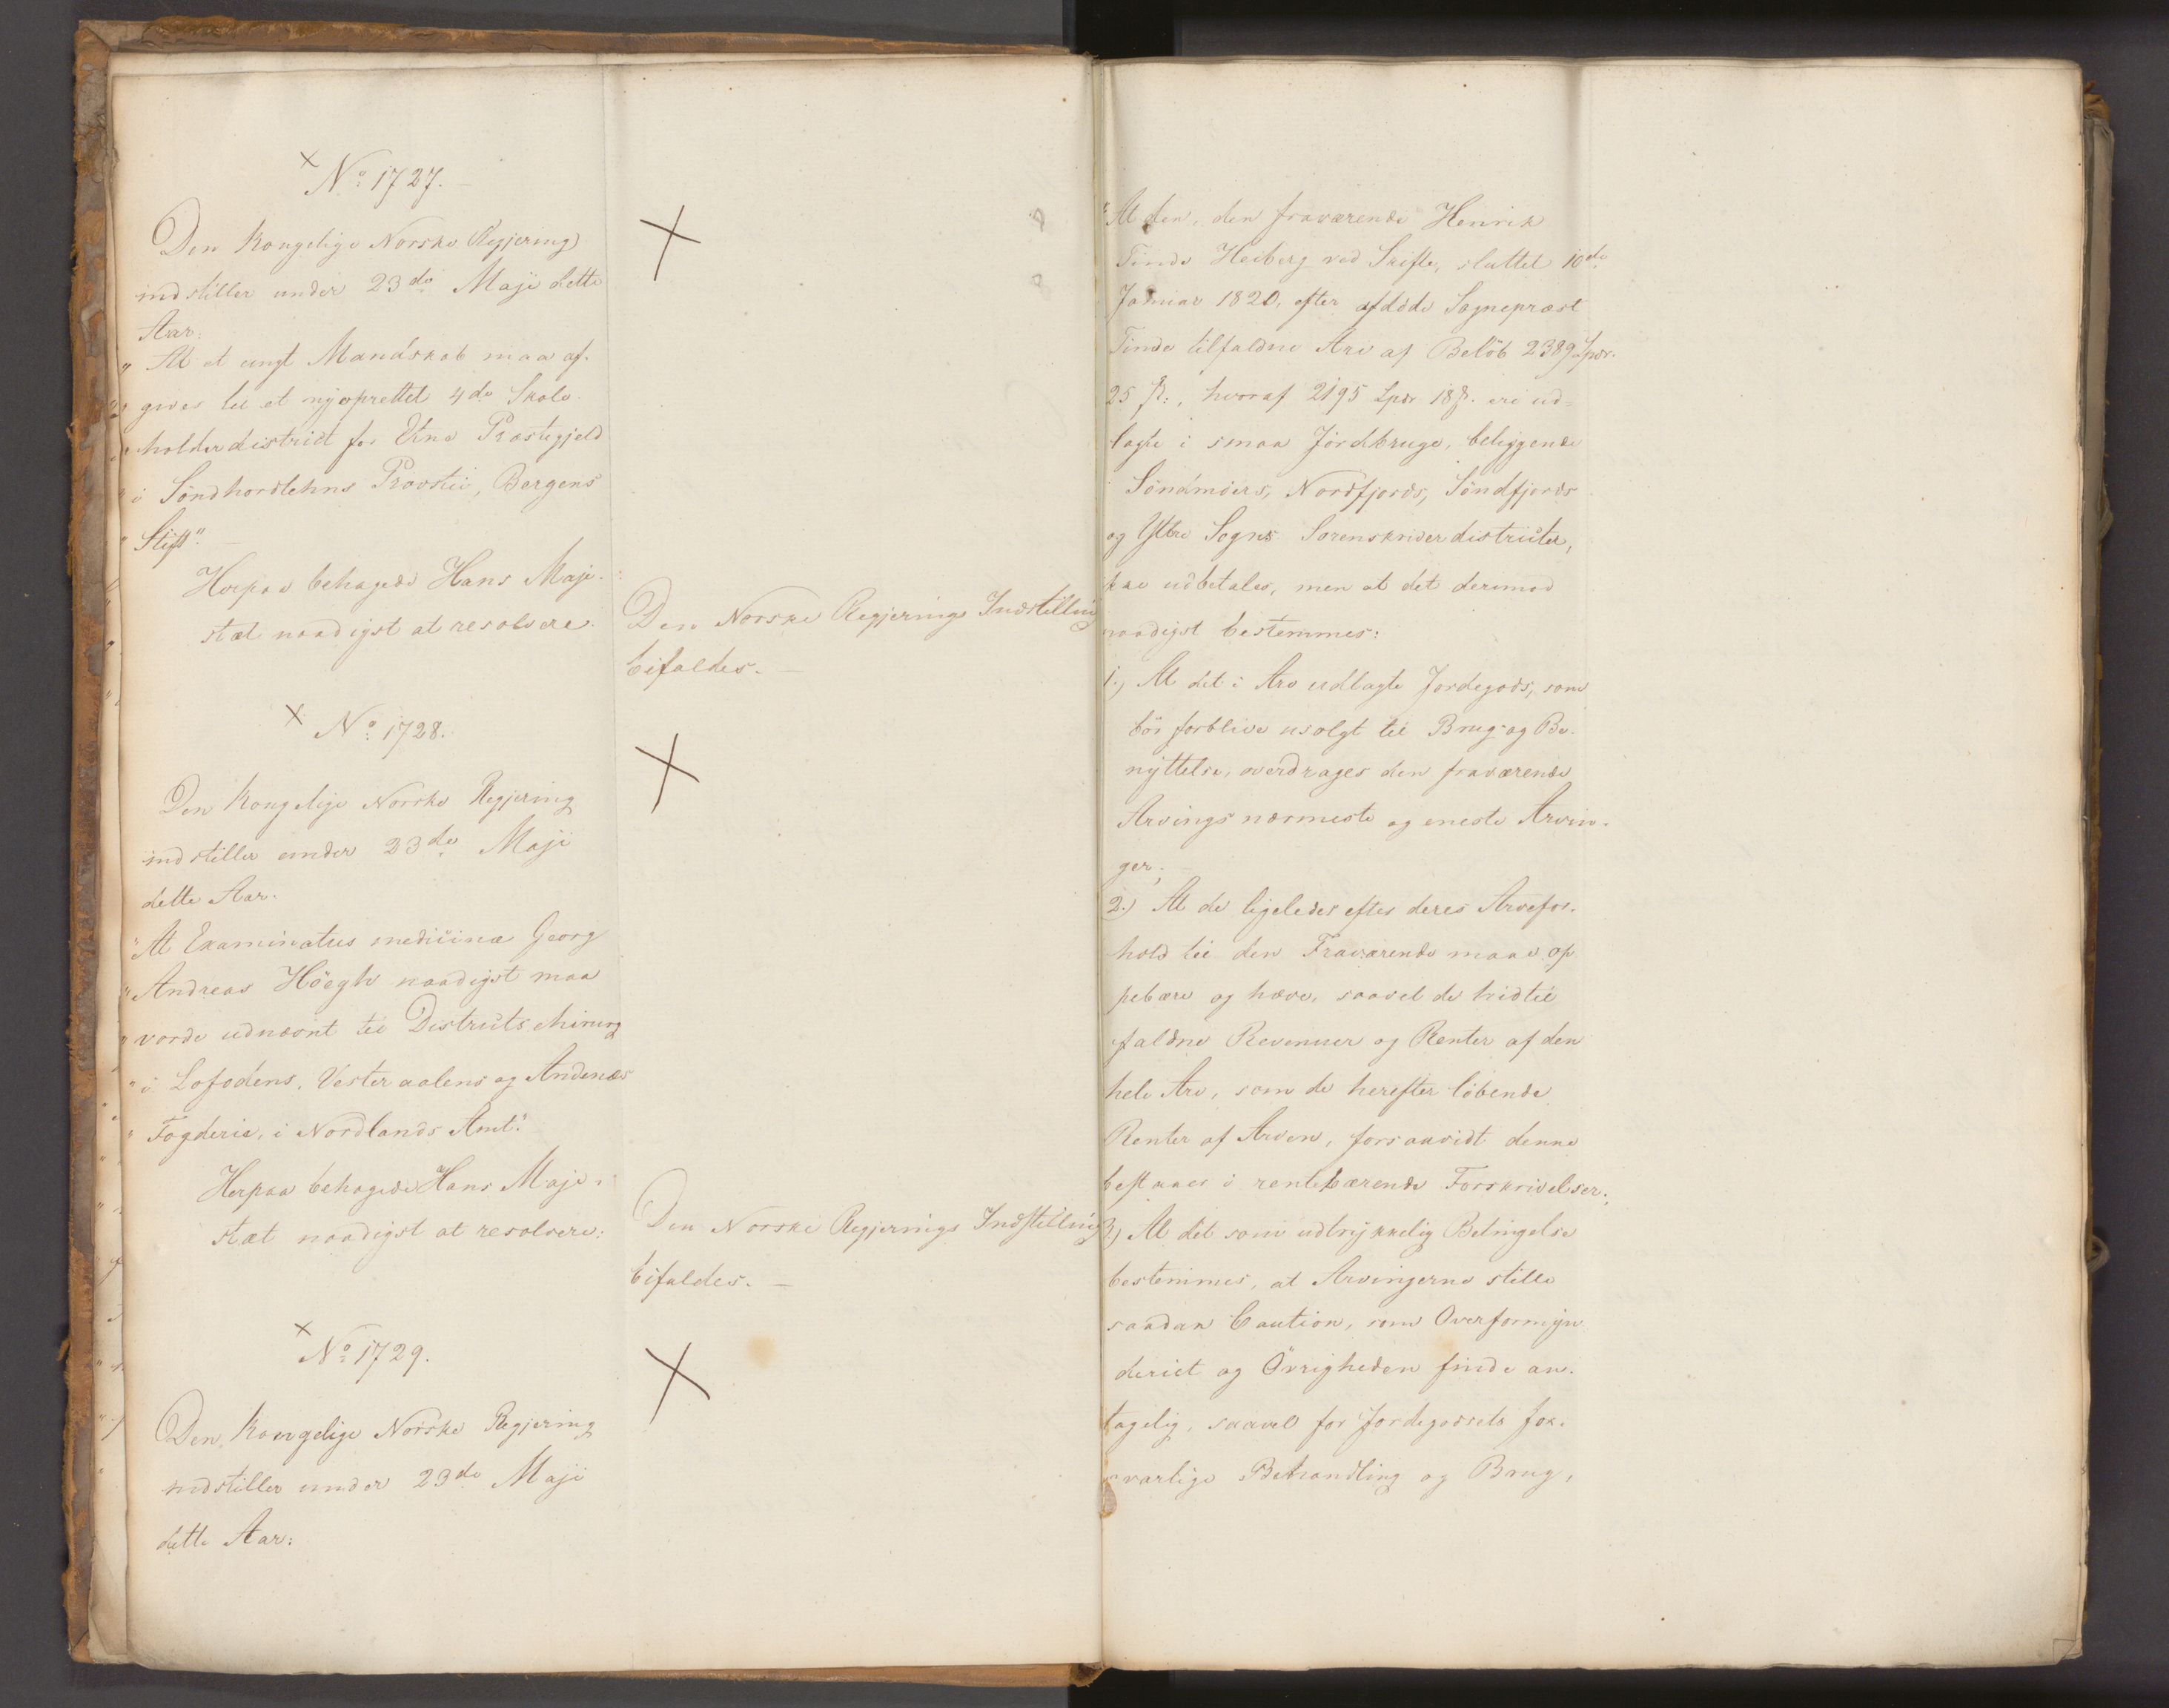 No 1727.
Den Kongelige Norske Regjering
indstiller under 23de Maji dette
Aar:
"At et ungt Mandskab maa af-
"gives til et nyoprettet 4de Skole-
"holderdistrict for Etne Præstegjeld
"i Söndhordlehns Provstie, Bergens
"Stift".
Herpaa behagede Hans Maje-
stæt naadigst at resolvere:
Den Norske Regjerings Indstilling
bifaldes.
No 1728.
Den Kongelige Norske Regjering
indstiller under 23de Maji
dette Aar:
"At Examinatus medicinæ Georg
"Andreas Höegh naadigst maa
"vorde udnævnt til Districtschirurg
"i Lofodens, Vesteraalens og Andenæs
"Fogderie, i Nordlands Amt".
Herpaa behagede Hans Maje-
stæt naadigst at resolvere:
Den Norske Regjerings Indstilling
bifaldes.
No 1729.
Den Kongelige Norske Regjering
indstiller under 23de Maji
dette Aar:
"At den, den fraværende Henrik
Finde Heiberg ved Skifte, sluttet 10de
Januar 1820, efter afdöde Sognepræst
Finde tilfaldne Arv af Belöb 2389 Spdr.
25 ß:, hvoraf 2195 Spdr 18 ß. ere ud-
lagte i smaa Jordbruge, beliggende
i Söndmöers, Nordfjords, Söndfjords
og Yttre Sogns Sorenskriverdistricter,
kke udbetales, men at det derimod
naadigst bestemmes:
1.) At det i Arv udlagte Jordegods, som
bör forblive usolgt til Brug og Be-
nyttelse, overdrages den fraværende
Arvings nærmeste og eneste Arvin-
ger;
2.) At de ligeledes efter deres Arvefor-
hold til den Fraværende maae op
pebære og hæve, saavel de hidtil
faldne Revenuer og Renter af den
hele Arv, som de herefter löbende
Renter af Arven, forsaavidt denne
bestaaer i rentebærende Forskrivelser;
3.) At det som udtrykkelig Betingelse
bestemmes, at Arvingerne stille
saadan Caution, som Overformyn
deriet og Övrigheden finde an-
tagelig, saavel for Jordegodsets for-
svarlige Behandling og Brug,